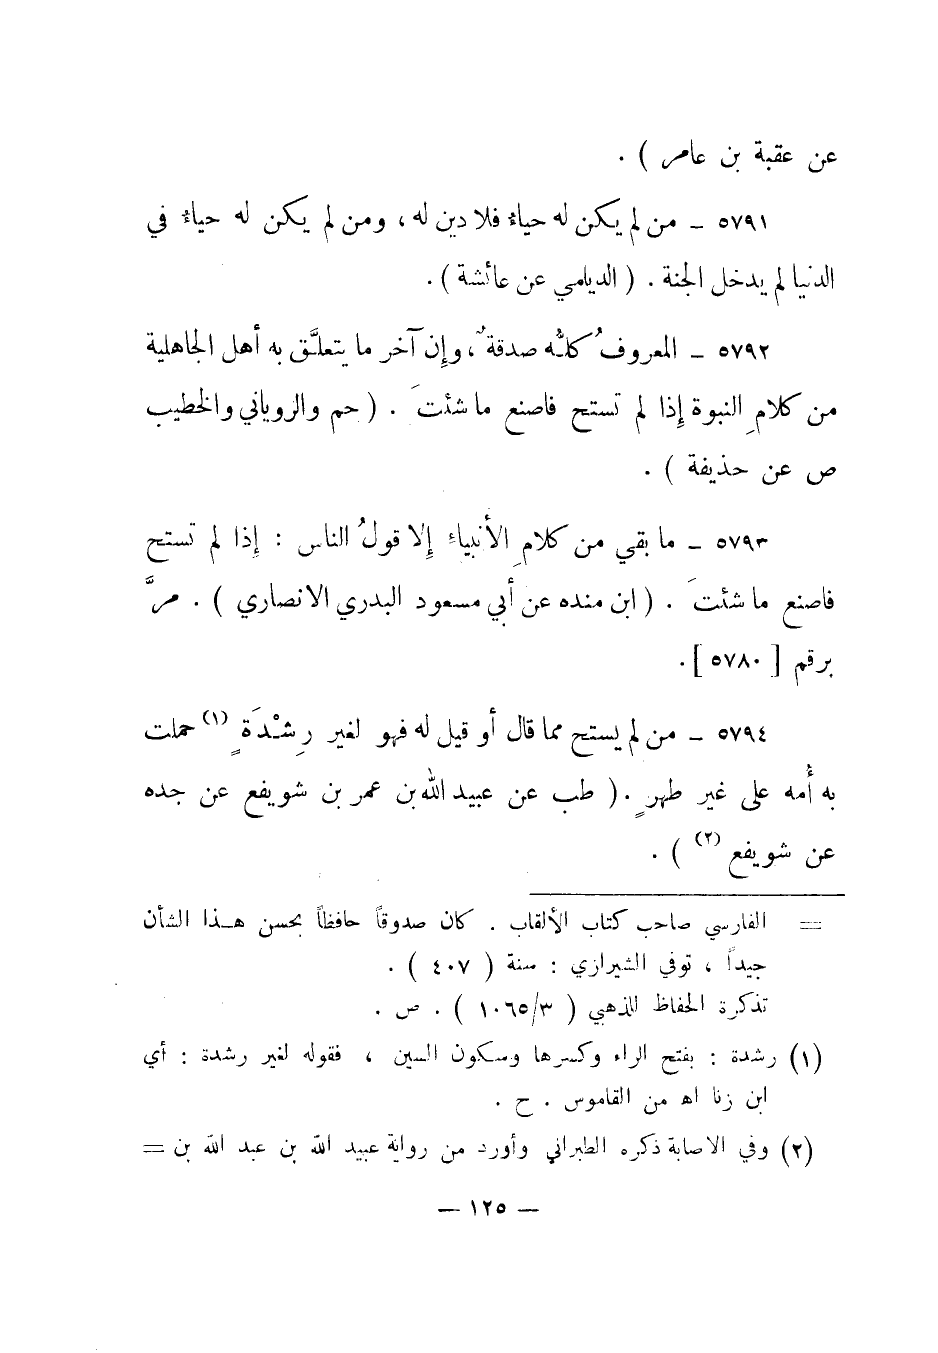 عن عقبة بن عامر ) .
٥٧٩١ – من لم يكن له حياءٌ فلا دين له ، ومن لم يكن له حياءٌ في
الدنيا لم يدخل الجنة . ( الديلمي عن عائشة ) .
٥٧٩٢ – المعروفُ كلُّه صدقةٌ ، وإِن آخر ما يتعلَّق به أهل الجاهلية
من كلامِ النبوة إِذا لم تستح فاصنع ما شئتَ . ( حم والروياني والخطيب
ص عن حذيفة ) .
٥٧٩٣ – ما بقي من كلامِ الأَنبياءِ إِلا قولُ الناس : إِذا لم تستح
فاصنع ما شئتَ . ( ابن منده عن أبي مسعود البدري الانصاري ) . مرَّ
برقم [ ٥٧٨٠ ] .
٥٧٩٤ – من لم يستح مما قال أو قيل له فهو لغير رِشْدَةٍ (١) حملت
به أُمه على غير طهرٍ . ( طب عن عبيد الله بن عمر بن شويفع عن جده
عن شويفع (٢) ) .
= الفارسي صاحب كتاب الألقاب . كان صدوقاً حافظاً يحسن هـذا الشأن
جيداً ، توفي الشيرازي : سنة ( ٤٠٧ ) .
تذكرة الحفاظ للذهبي ( ١٠٦٥/٣ ) . ص .
(١) رشدة : بفتح الراء وكسرها وسكون السين ، فقوله لغير رشدة : أي
ابن زنا اه من القاموس . ح .
(٢) وفي الاصابة ذكره الطبراني وأورد من رواية عبيد الله بن عبد الله بن =
— ١٢٥ —